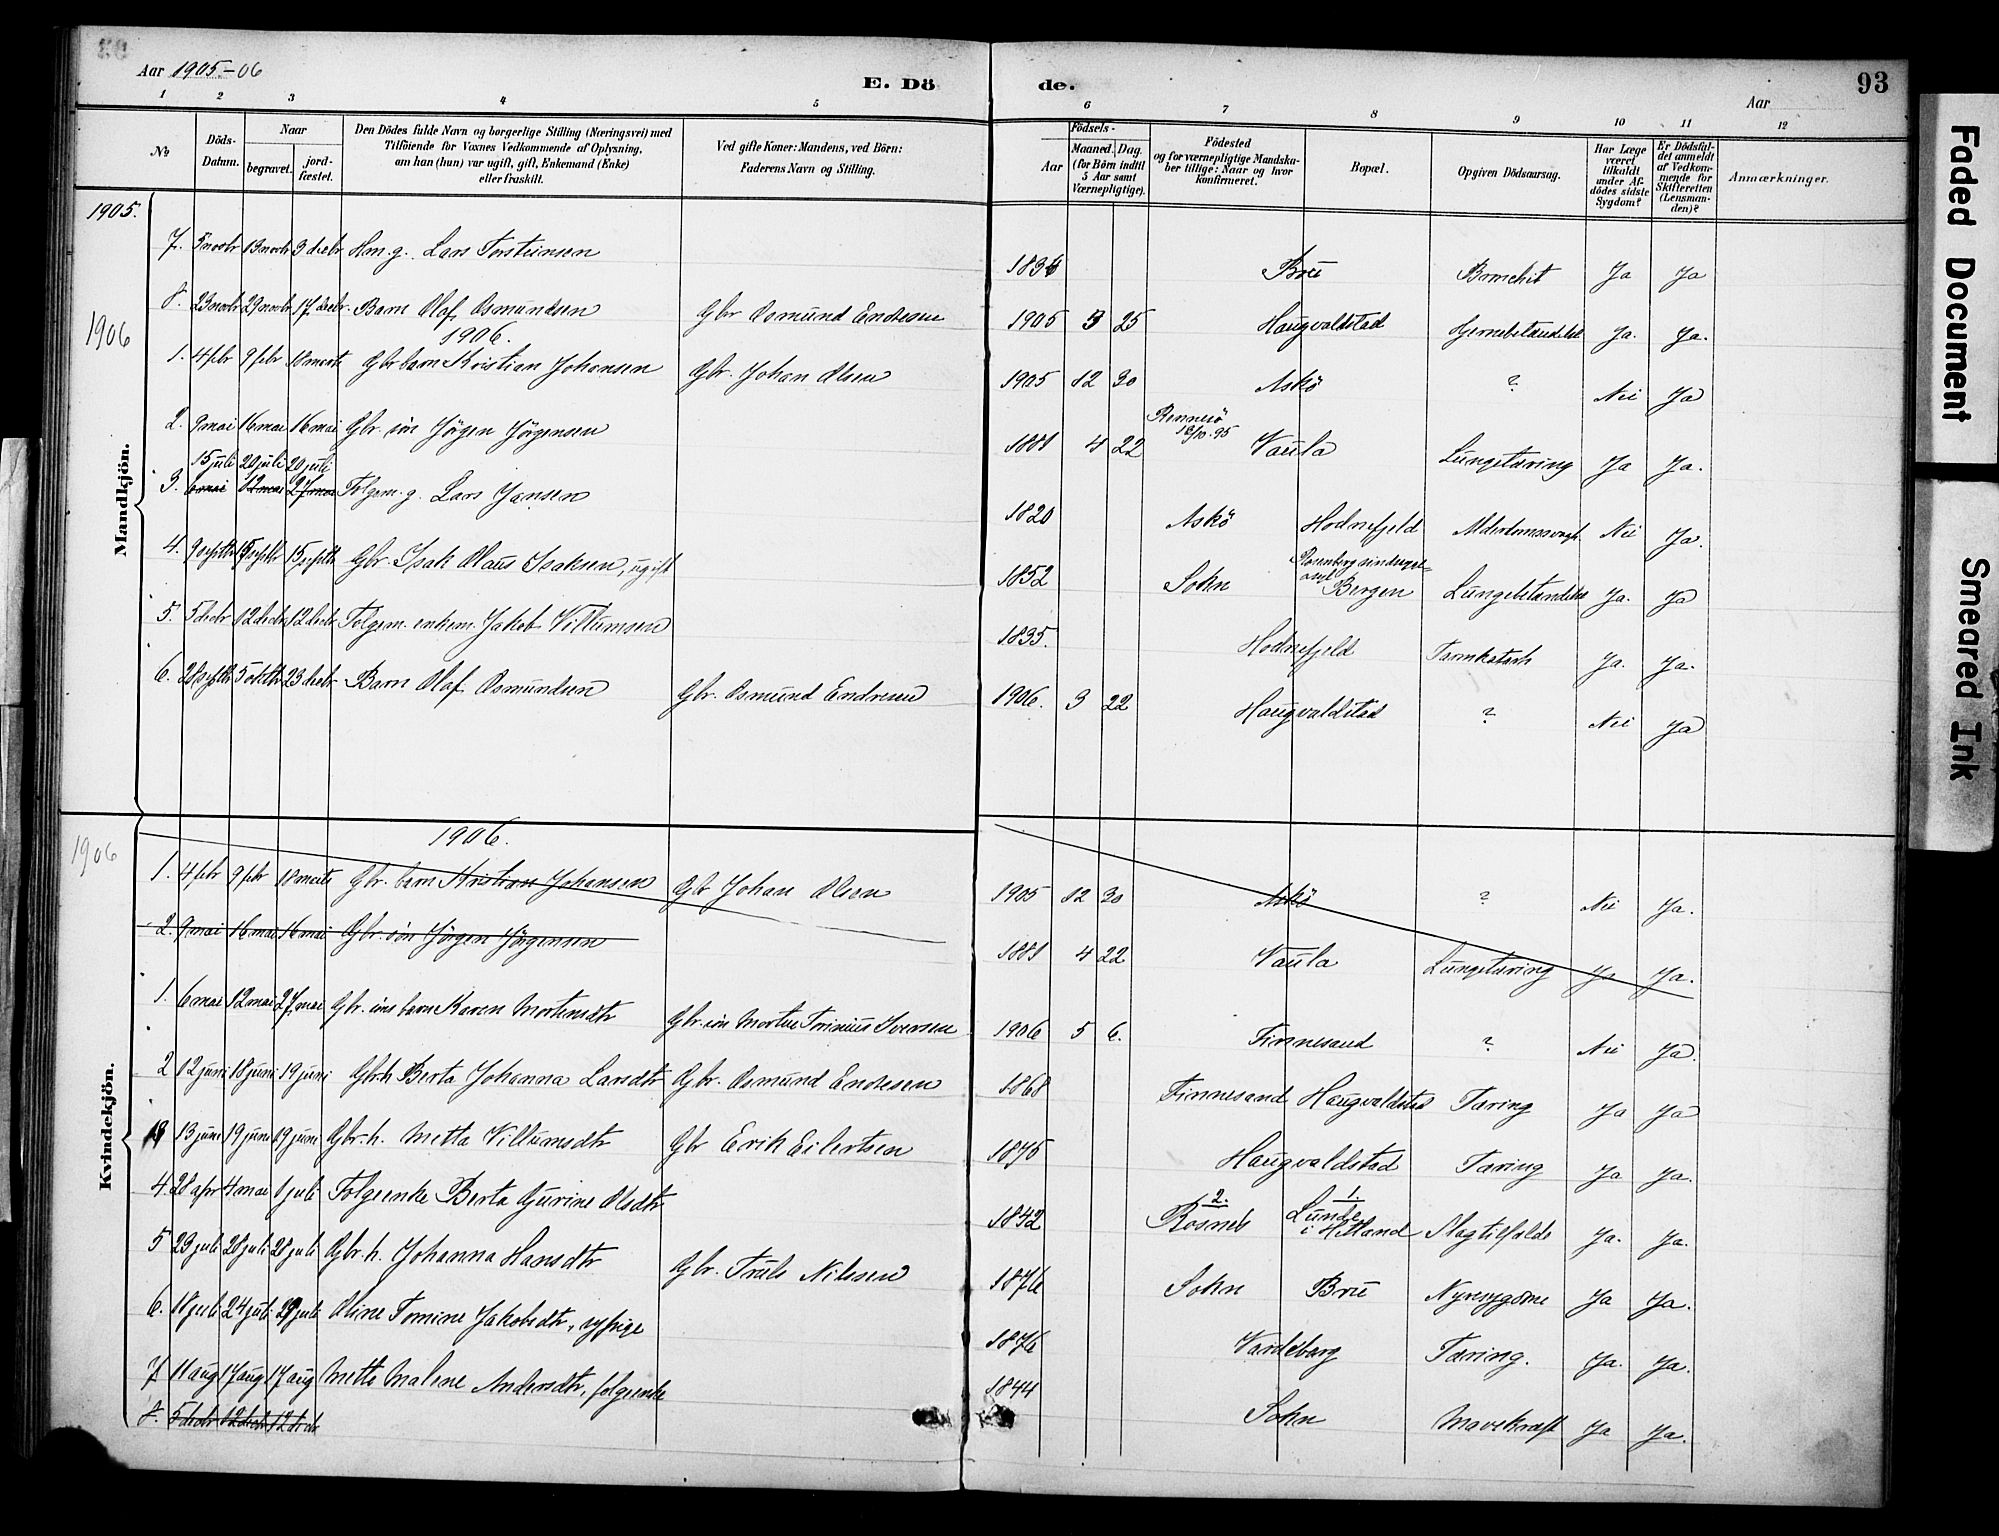 Aar 1905-06
E. Dö de.
93
Aar
1 2 3 4 5 6 7 8 9 10 11 12
No
Döds-Datum.
Naar
begravet.
jordfæstet.
Den Dödes fulde Navn og borgerlige Stilling (Næringsvei) med
Tilföiende for Voxnes Vedkommende af Oplysning,
om han (hun) var ugift, gift, Enkemand (Enke)
eller fraskilt.
Ved gifte Koner: Mandens, ved Börn:
Faderens Navn og Stilling.
Födsels-
Aar
Maaned. Dag.
(for Börn indtil
5 Aar samt
Værnepligtige).
Födested
og for værnepligtige Mandska-
ber tillige: Naar og hvor
konfirmeret.
Bopæl.
Opgiven Dödsaarsag.
Har Læge
været
tilkaldt
under Af-
dödes sidste
Sygdom?
Er Dödsfal-
det anmeldt
af Vedkom-
mende for
Skifteretten
(Lensman-
den)?
Anmærkninger.
Mandkjön.
1905.
7. 5 novbr 13 novbr 3 decbr Hm. g. Lars Torsteinsen 1834 Bru Bronchit Ja Ja
8. 23 novbr 29 novbr 17. decbr. Barn Olaf Osmundsen Gbr Osmund Endresen 1905 3 25 Haugvaldstad Hjernebetændelse Ja. Ja.
1906
1906.
1. 4 febr 9 febr 18 marts Gbr barn Kristian Johansen Gbr. Johan Olsen 1905 12 30 Askö ? Nei Ja
2. 9 mai 16 mai 16 mai Gbr. sön Jörgen Jörgensen 1881 4 22 Rennesö 13/10.95 Vaula Lungetæring Ja Ja.
15 juli 20 juli 20 juli
3. 6 mai 12 mai 27 mai Folgem. g. Lars Jansen 1820 Askö Hodnefjeld Alderdomssvagh. Nei Ja.
4. 9 septbr 15 septbr 15 septbr Gbr. Isak Olaus Isaksen, ugift 1852 Sokn Rosenberg sindssygeasyl Bergen Lungebetændelse Ja. Ja
5. 5 decbr 12 decbr 12 decbr Folgem. enkem. Jakob Villumsen 1835. Hodnefjeld Tarmkatarh Ja. Ja.
6. 28 septbr 5 oktbr 23 decbr Barn Olaf Osmundsen Gbr. Osmund Endresen 1906. 3 22 Haugvaldstad ? Nei Ja
Kvindekjön.
1906
1906.
1. 4 febr 9 febr 18 marts Gbr. barn Kristian Johansen Gbr Johan Olsen 1905 12 30 Askö ? Nei Ja.
2. 9 mai 16 mai 16 mai Gbr. sön Jörgen Jörgensen 1881 4 22 Vaula Lungetæring Ja Ja.
1. 6 mai 12 mai 27. mai Gbr. söns barn Karen Mortensdtr Gbr. sön Morten Torinius Iversen 1906 5 6. Finnesand ? Nei Ja.
2 12 juni 18 juni 19 juni Gbr. h Berta Johanna Larsdtr Gbr. Osmund Endresen 1868 Finnesand Haugvaldstad Tæring Ja Ja
13 juni 19 juni 19 juni Gbr. h. Metta Villumsdtr Gbr Erik Eilertsen 1875 Haugvaldstad Tæring Ja Ja.
4. 28 apr 4 mai 1 juli Folgeenke Berta Gurine Olsdtr 1842 2. Rosnes 1. Lunde i Hetland Slagtilfælde Ja. Ja.
5 23 juli 28 juli 28 juli Gbr. h. Johanna Hansdtr Gbr. Truls Nilssen 1876 Sokn Bru Nyresygdom Ja Ja.
6. 18 juli 24 juli 29 juli Oline Tomine Jakobsdtr, sypige 1876 Vardeberg Tæring. Ja. Ja.
7. 11 aug 17 aug 17 aug Metta Malene Andersdtr, folgeenke 1844 Sokn Mavekræft Ja Ja.
8. 5 decbr 12 decbr 12 decbr
Faded Document
Smeared Ink